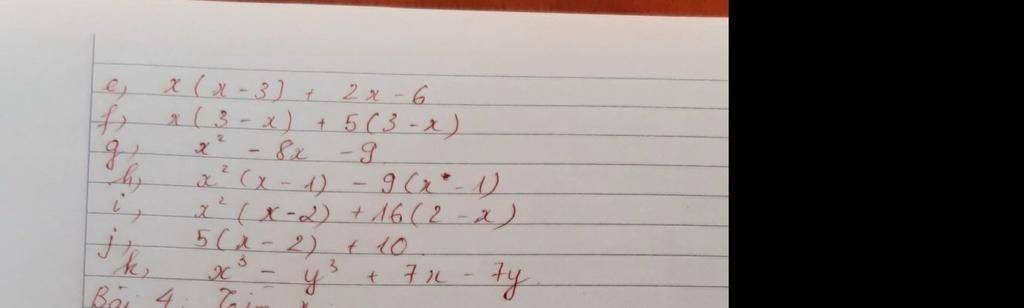 e, x(x-3) + 2x-6
f, x(3-x) + 5(3-x)
g, x² - 8x - 9
h, x²(x-1) - 9(x-1)
i, x²(x-2) + 16(2-x)
j, 5(x-2) + 10
k, x³ - y³ + 7x - 7y
Bài 4: